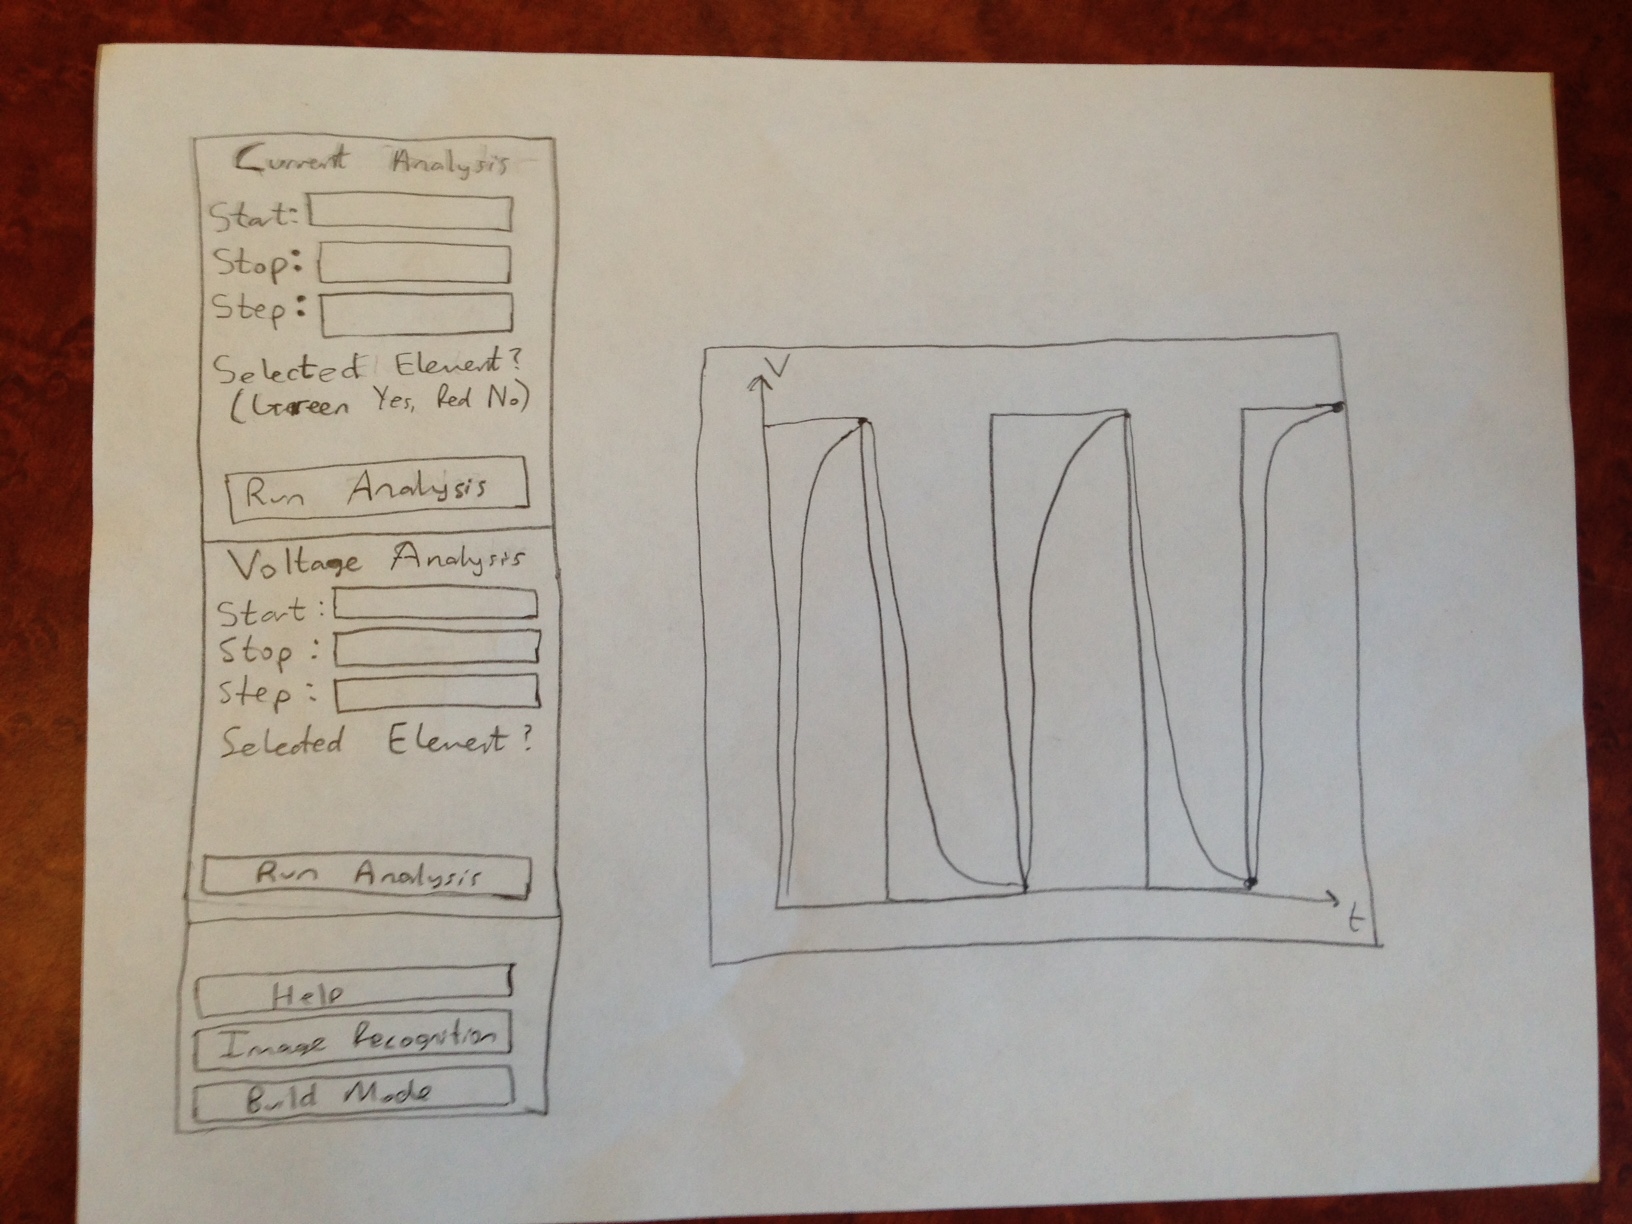 Current Analysis
Start:
Stop:
Step:
Selected Element?
(Green Yes, Red No)
Run Analysis
Voltage Analysis
Start:
Stop:
Step:
Selected Element?
Run Analysis
Help
Image Recognition
Build Mode
V
t